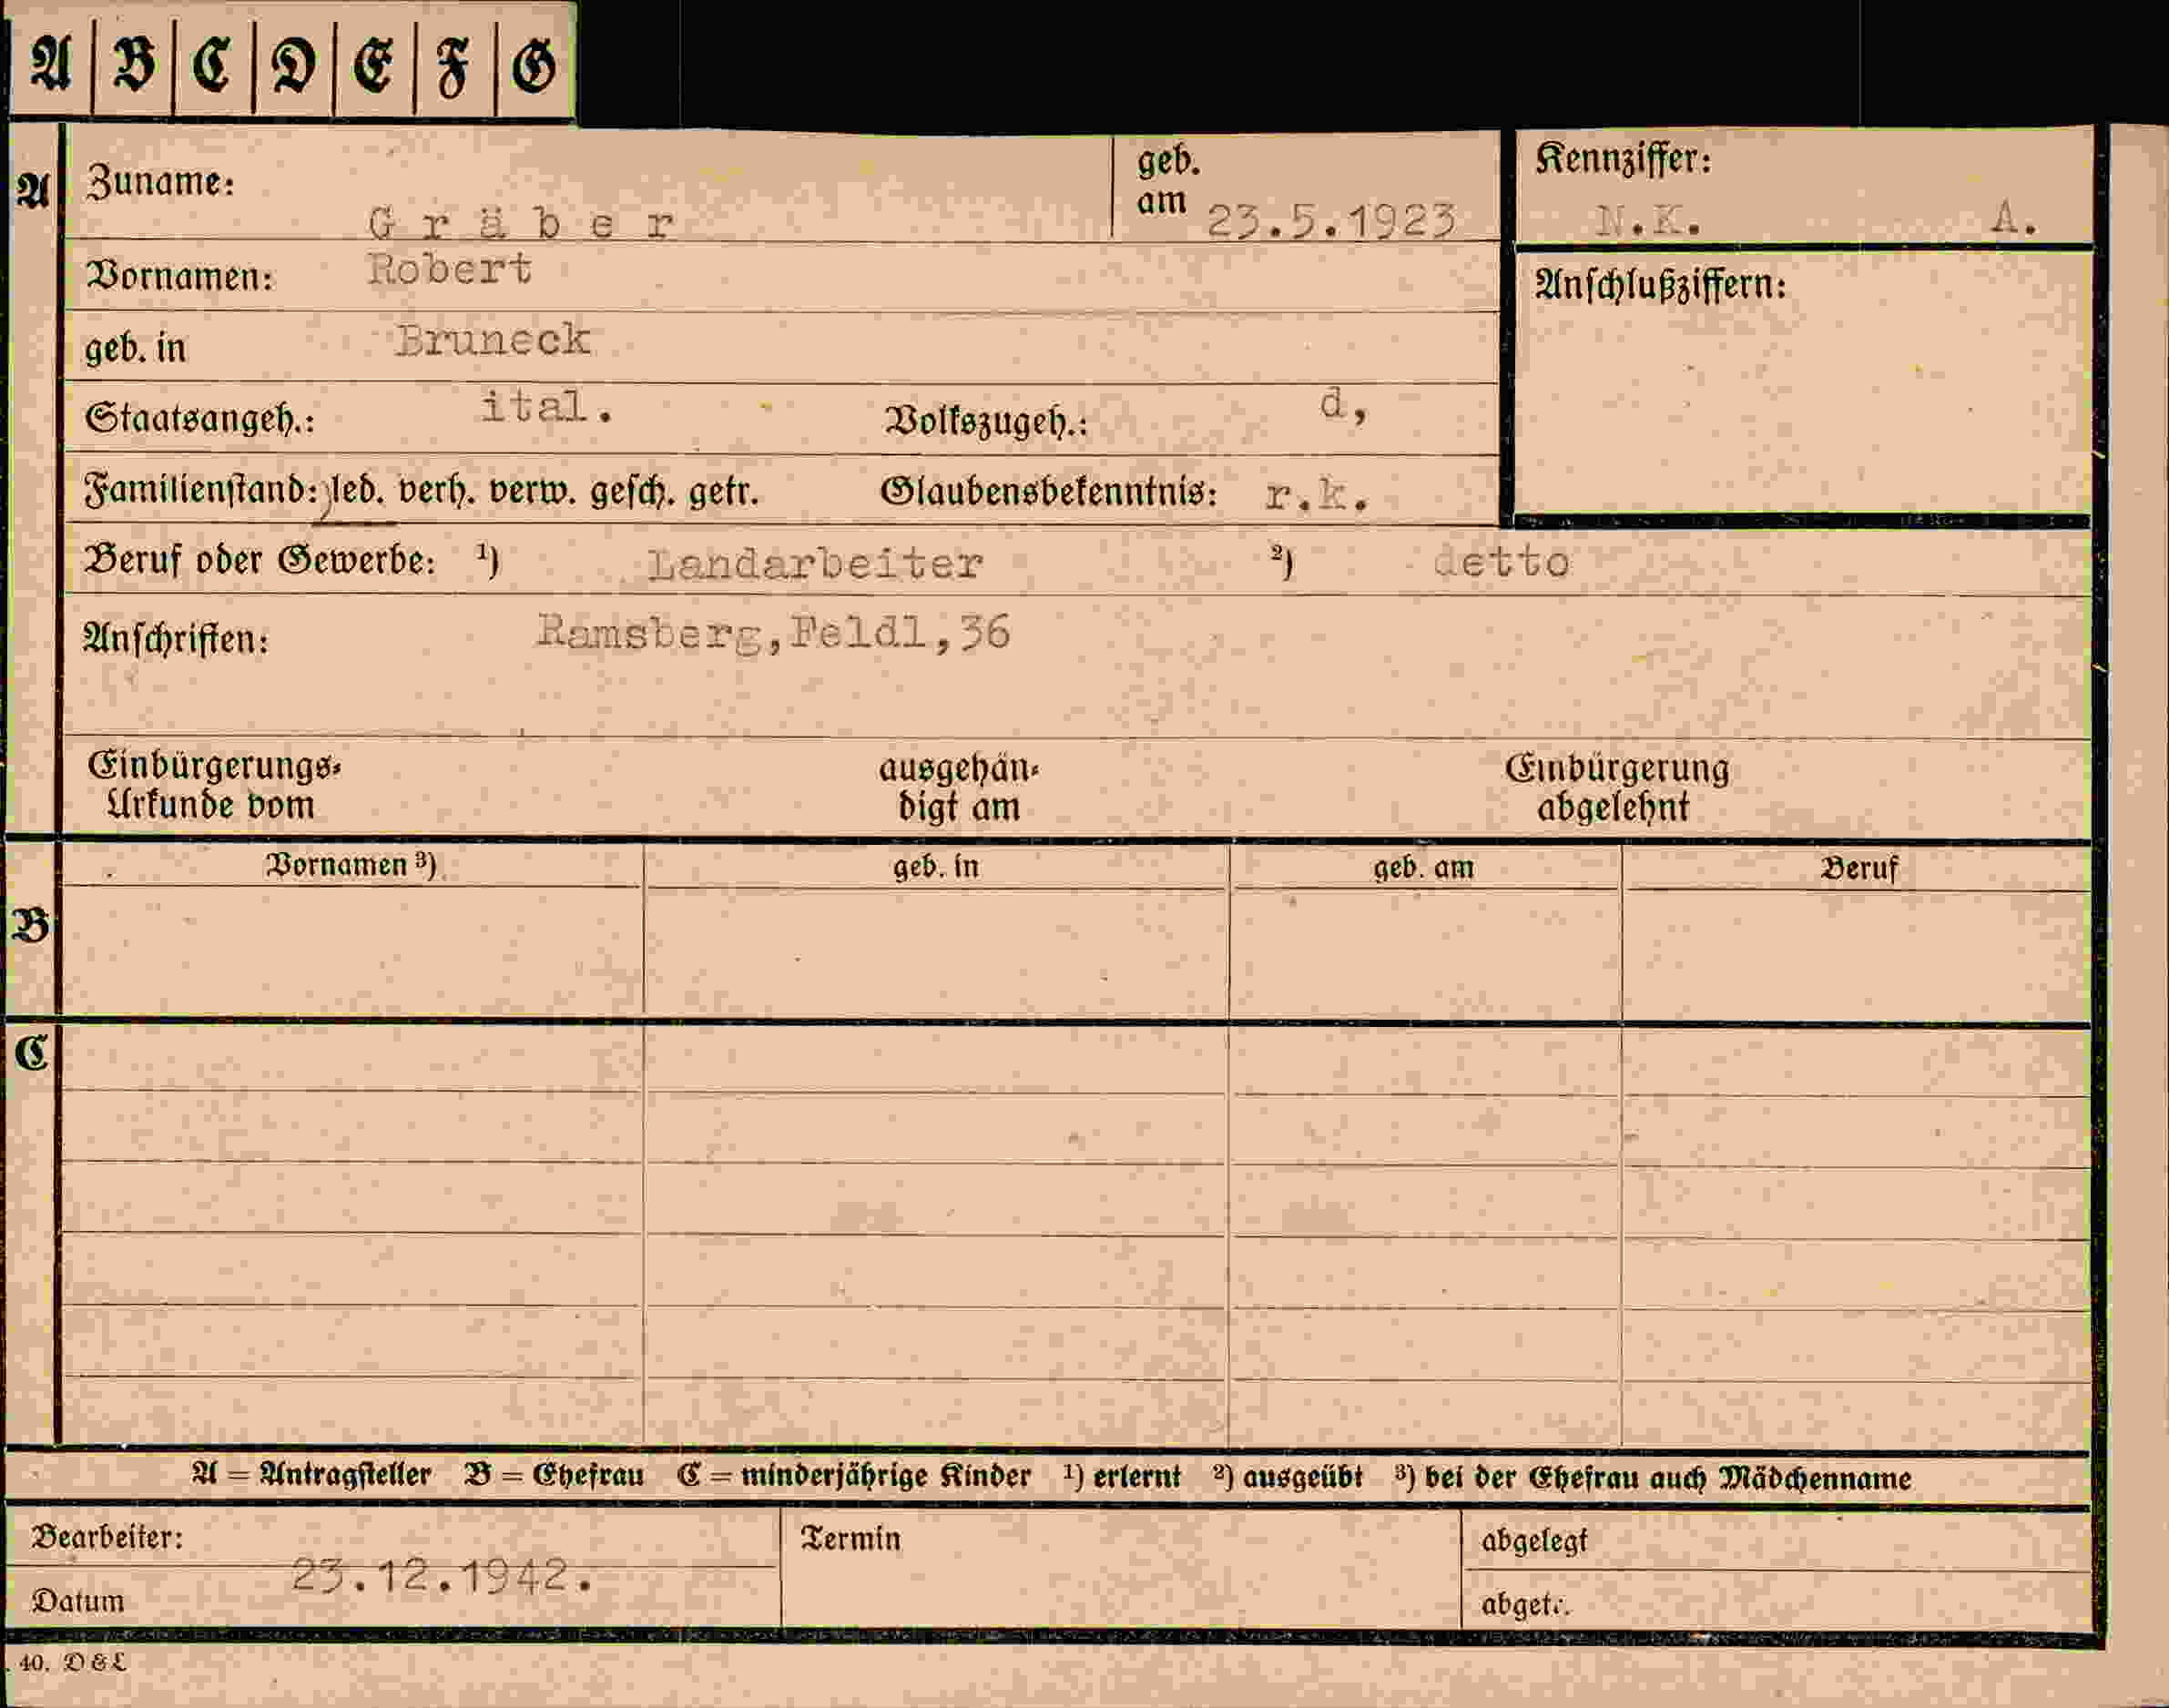 A B C D E F G
A Zuname: Gräber geb. am 23.5.1923 Kennziffer: N.K. A.
Vornamen: Robert
Anschlußziffern:
geb. in Bruneck
Staatsangeh.: ital. Volkszugeh.: d,
Familienstand: led. verh. verw. gesch. getr. Glaubensbekenntnis: r.k.
Beruf oder Gewerbe: ¹) Landarbeiter ²) detto
Anschriften: Ramsberg,Feldl,36
Einbürgerungs- ausgehän- Einbürgerung
Urkunde vom digt am abgelehnt
Vornamen ³) geb. in geb. am Beruf
B
C
A = Antragsteller B = Ehefrau C = minderjährige Kinder ¹) erlernt ²) ausgeübt ³) bei der Ehefrau auch Mädchenname
Bearbeiter: Termin abgelegt
23.12.1942.
Datum abgetr.
40. D & L